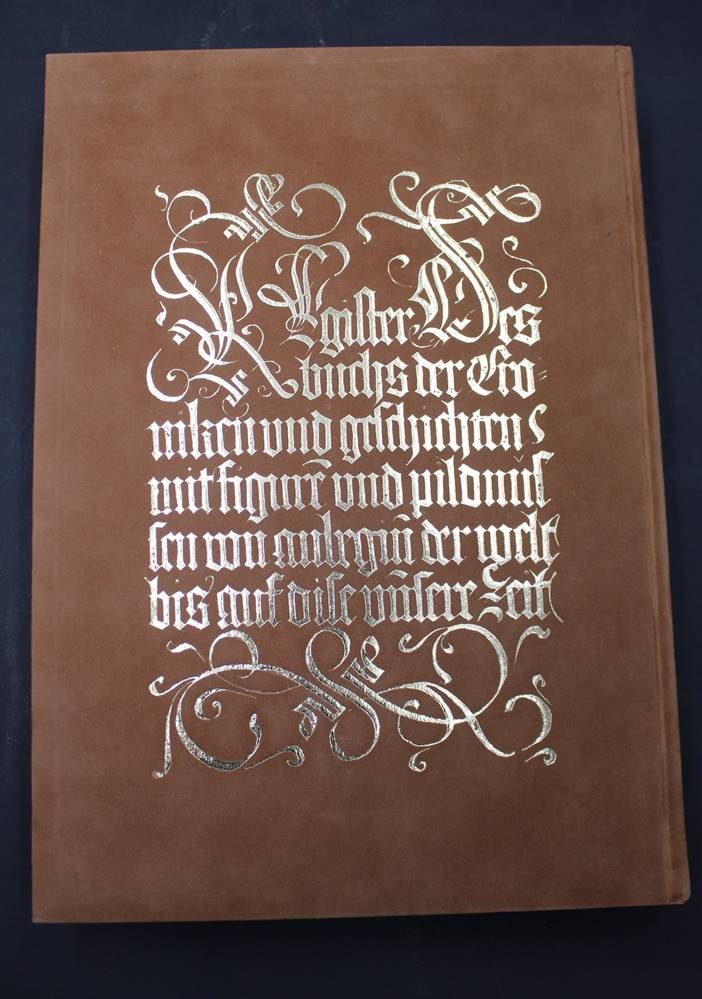 REgister Des
buchs der Cro-
niken und geschichten
mit figurē und pildnus-
sen von anbegiñ der welt
bis auf dise unsere Zeit